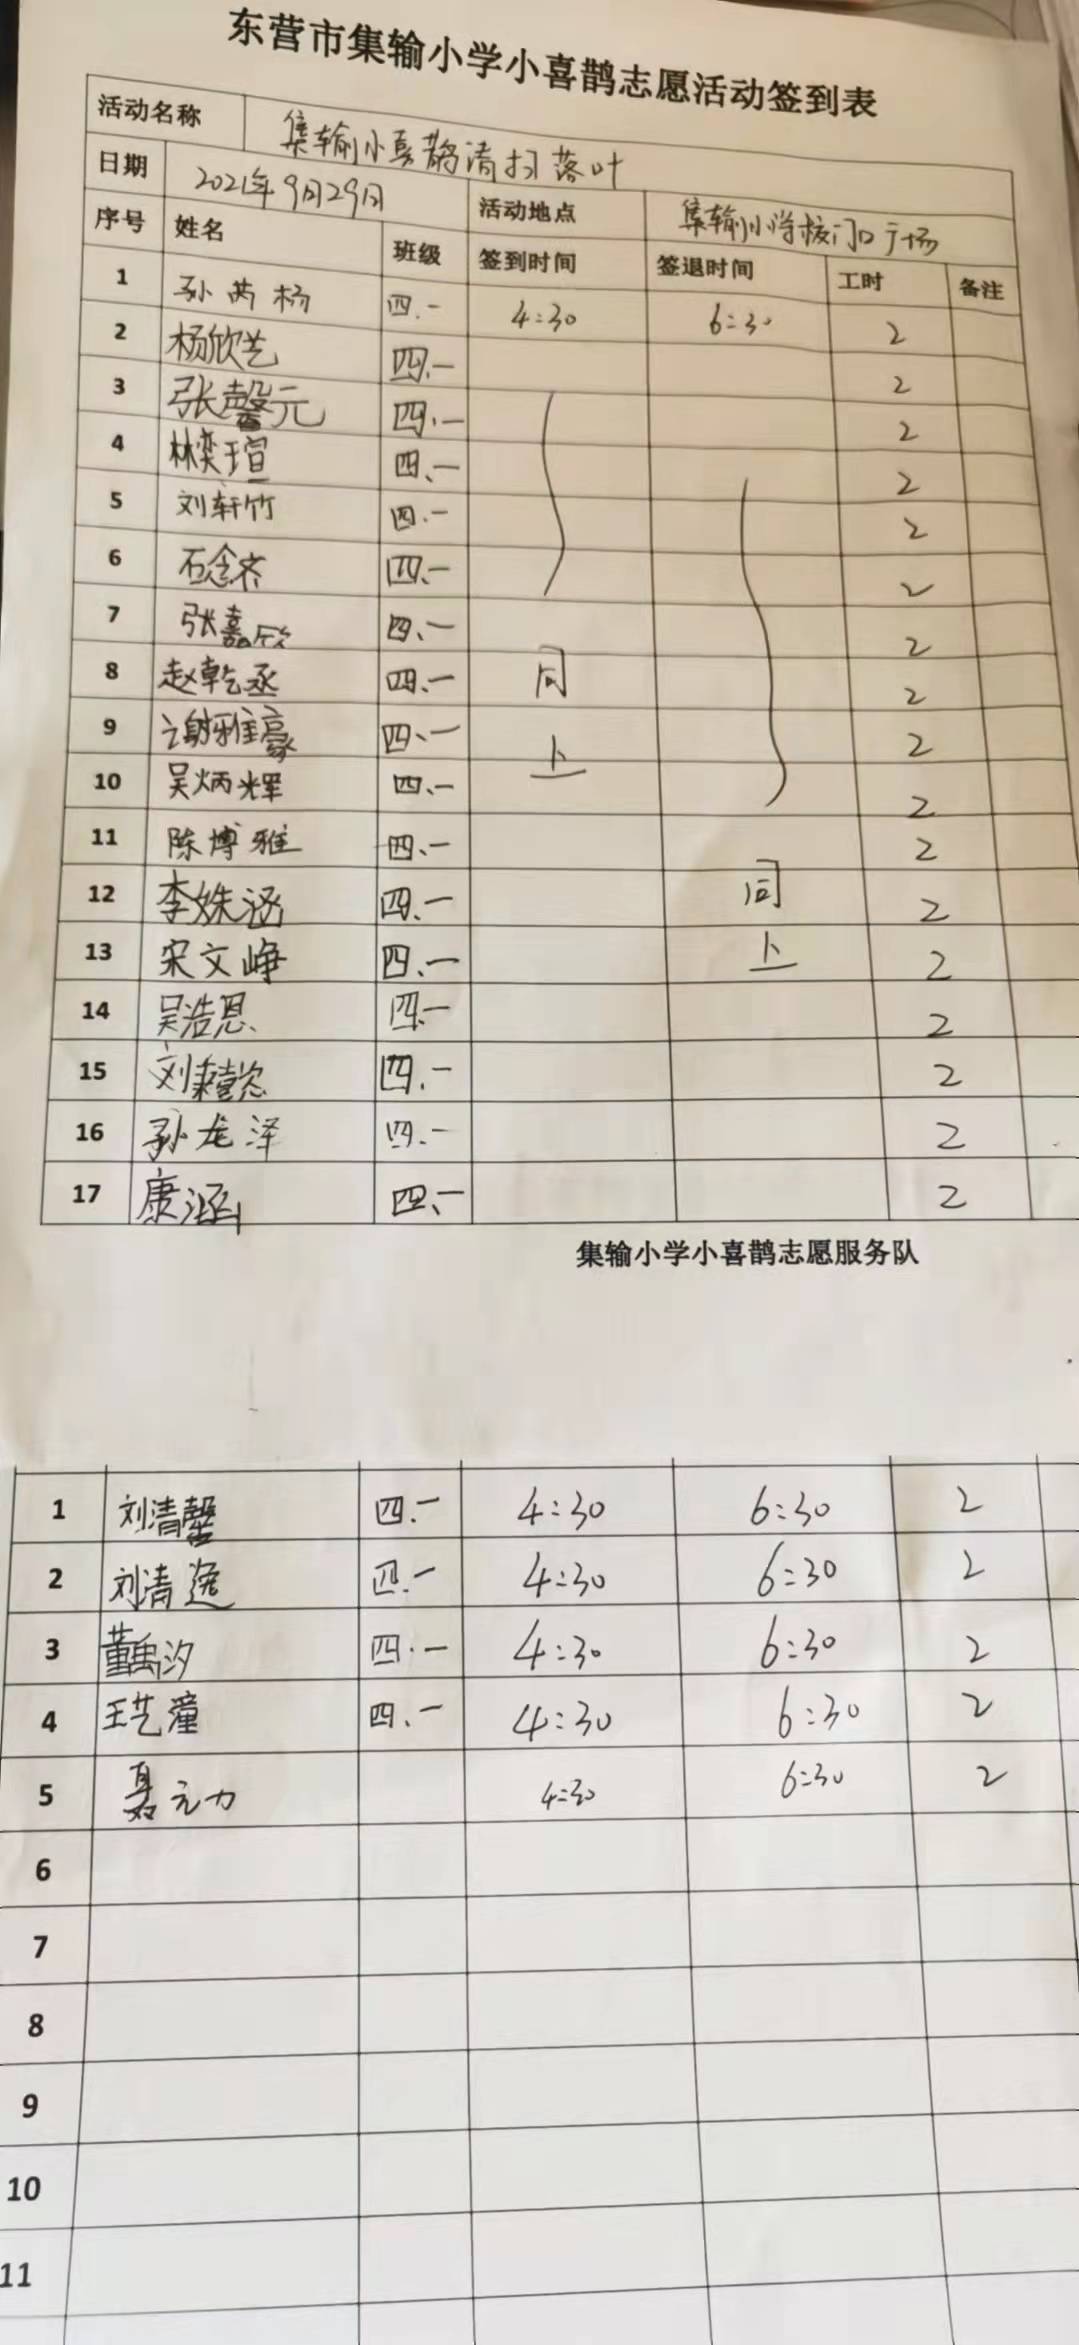 东营市集输小学小喜鹊志愿活动签到表
活动名称 集输小喜鹊清扫落叶
日期 2021年9月29日 活动地点 集输小学校门口广场
序号 姓名 班级 签到时间 签退时间 工时 备注
1 孙芮杨 四.一 4:30 6:30 2
2 杨欣艺 四.一 2
3 张馨元 四.一 2
4 林奕瑄 四、一 2
5 刘轩竹 四.一 2
6 石念齐 四.一 2
7 张嘉欣 四、一 2
8 赵乾丞 四.一 同 2
9 谢雅豪 四、一 上 2
10 吴炳辉 四、一 2
11 陈博雅 四、一 2
12 李姝涵 四.一 同 2
13 宋文峥 四、一 上 2
14 吴浩恩 四一 2
15 刘 四.一 2
16 孙龙泽 四.一 2
17 康涵 四、一 2
集输小学小喜鹊志愿服务队
1 刘清馨 四.一 4:30 6:30 2
2 刘清逸 四.一 4:30 6:30 2
3 董禹汐 四.一 4:30 6:30 2
4 王艺潼 四、一 4:30 6:30 2
5 聂元力 4:30 6:30 2
6
7
8
9
10
11